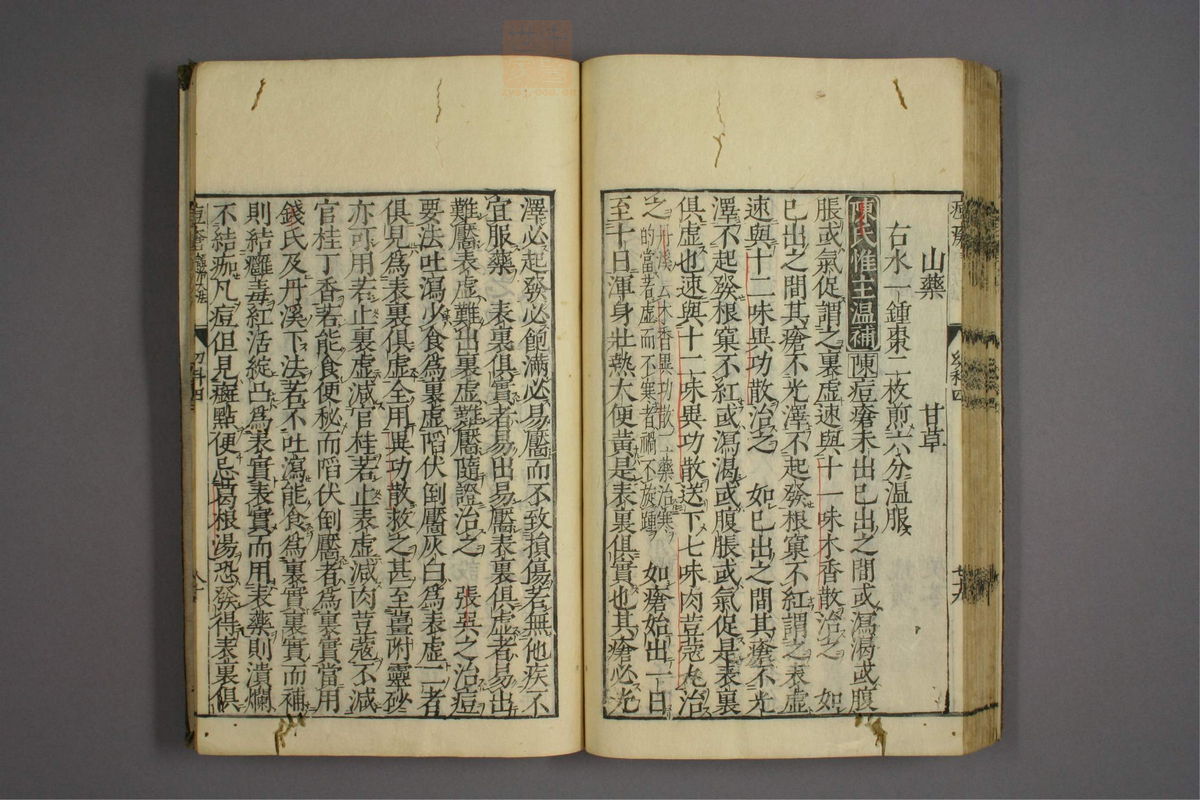 山藥 甘草
右水一鍾棗二枚煎六分温服
陳氏惟主温補 陳痘瘡未出已出之間或瀉渴或腹
脹或氣促謂之裏虛速與十一味木香散治之 如
已出之間其瘡不光澤不起發根窠不紅謂之表虛
速與十二味異功散治之 如已出之間其瘡不光
澤不起發根窠不紅或瀉渴或腹脹或氣促是表裏
俱虛也速與十二味異功散送下七味肉荳蔲丸治
之 丹溪云木香異功散二藥治寒
的當若虛而不寒者禍不旋踵 如瘡始出一日
至十日渾身壯熱大便黃是表裏俱實也其瘡必光
澤必起發必飽滿必易靨而不致損傷若無他疾不
宜服藥 表裏俱實者易出易靨表裏俱虛者易出
難靨表虛難出裏虛難靨隨證治之 張與之治痘
要法吐瀉少食為裏虛陷伏倒靨灰白為表虛二者
俱見為表裏俱虛全用異功散救之甚至薑附靈砂
亦可用若止裏虛減官桂若止表虛減肉荳蔲不減
官桂丁香若能食便秘而陷伏倒靨者為裏實當用
錢氏及丹溪下法若不吐瀉能食為裏實裏實而補
則結癰毒紅活綻凸為表實表實而用表藥則潰爛
不結痂凡痘但見斑點便忌葛根湯恐發得表裏俱
幼科四